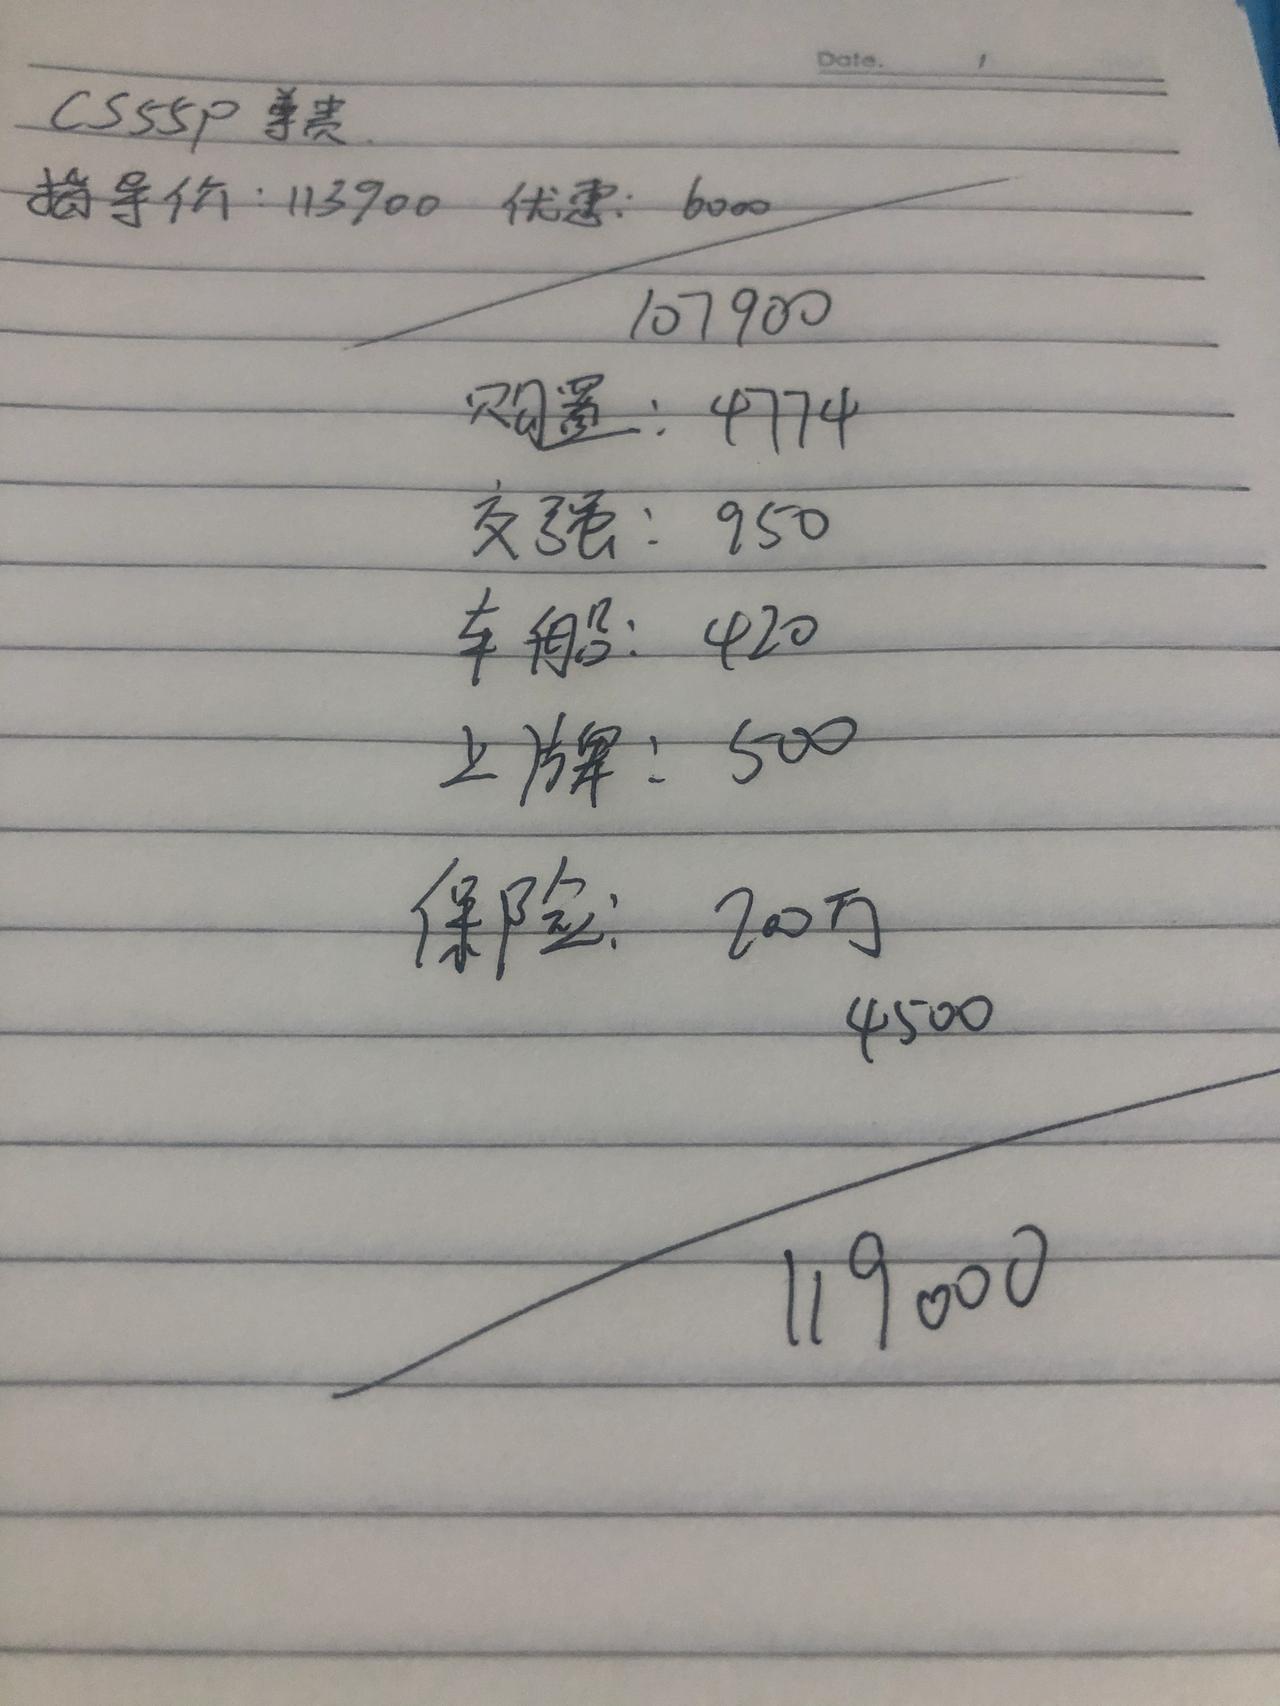 Date.
CS55P 尊贵
指导价：113900 优惠：6000
107900
购置：4774
交强：950
车船：420
上牌：500
保险：200万
4500
119000